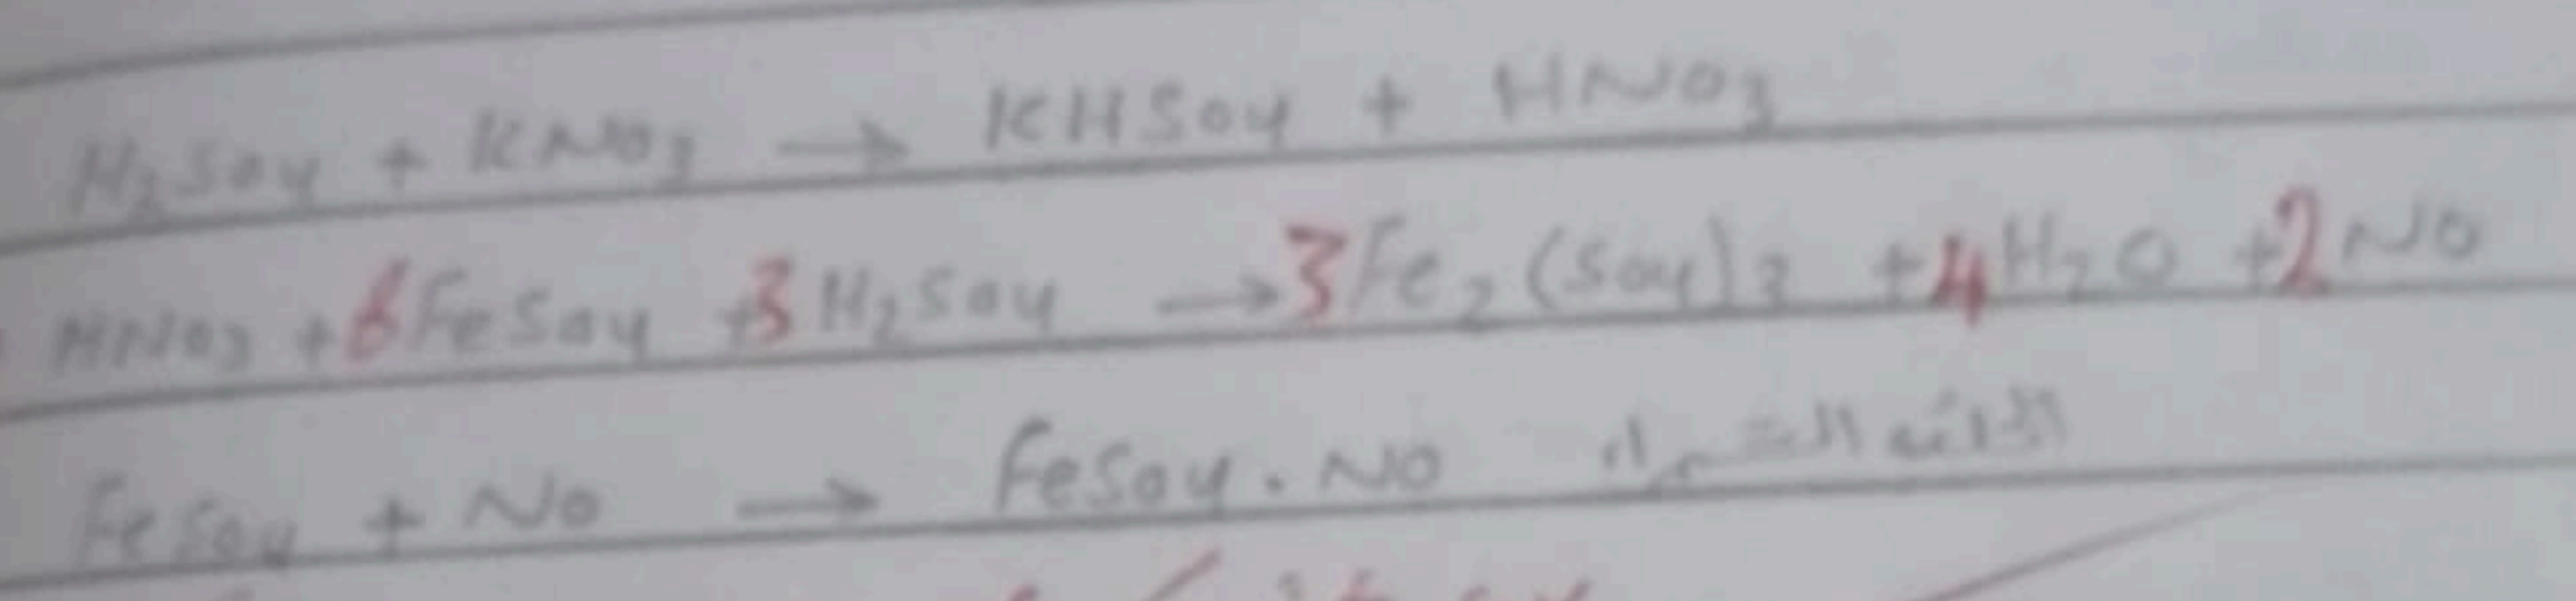 H₂SO₄ + KNO₃ → KHSO₄ + HNO₃
HNO₃ + 6FeSO₄ + 3H₂SO₄ → 3Fe₂(SO₄)₃ + 4H₂O + 2NO
FeSO₄ + NO → FeSO₄ . NO